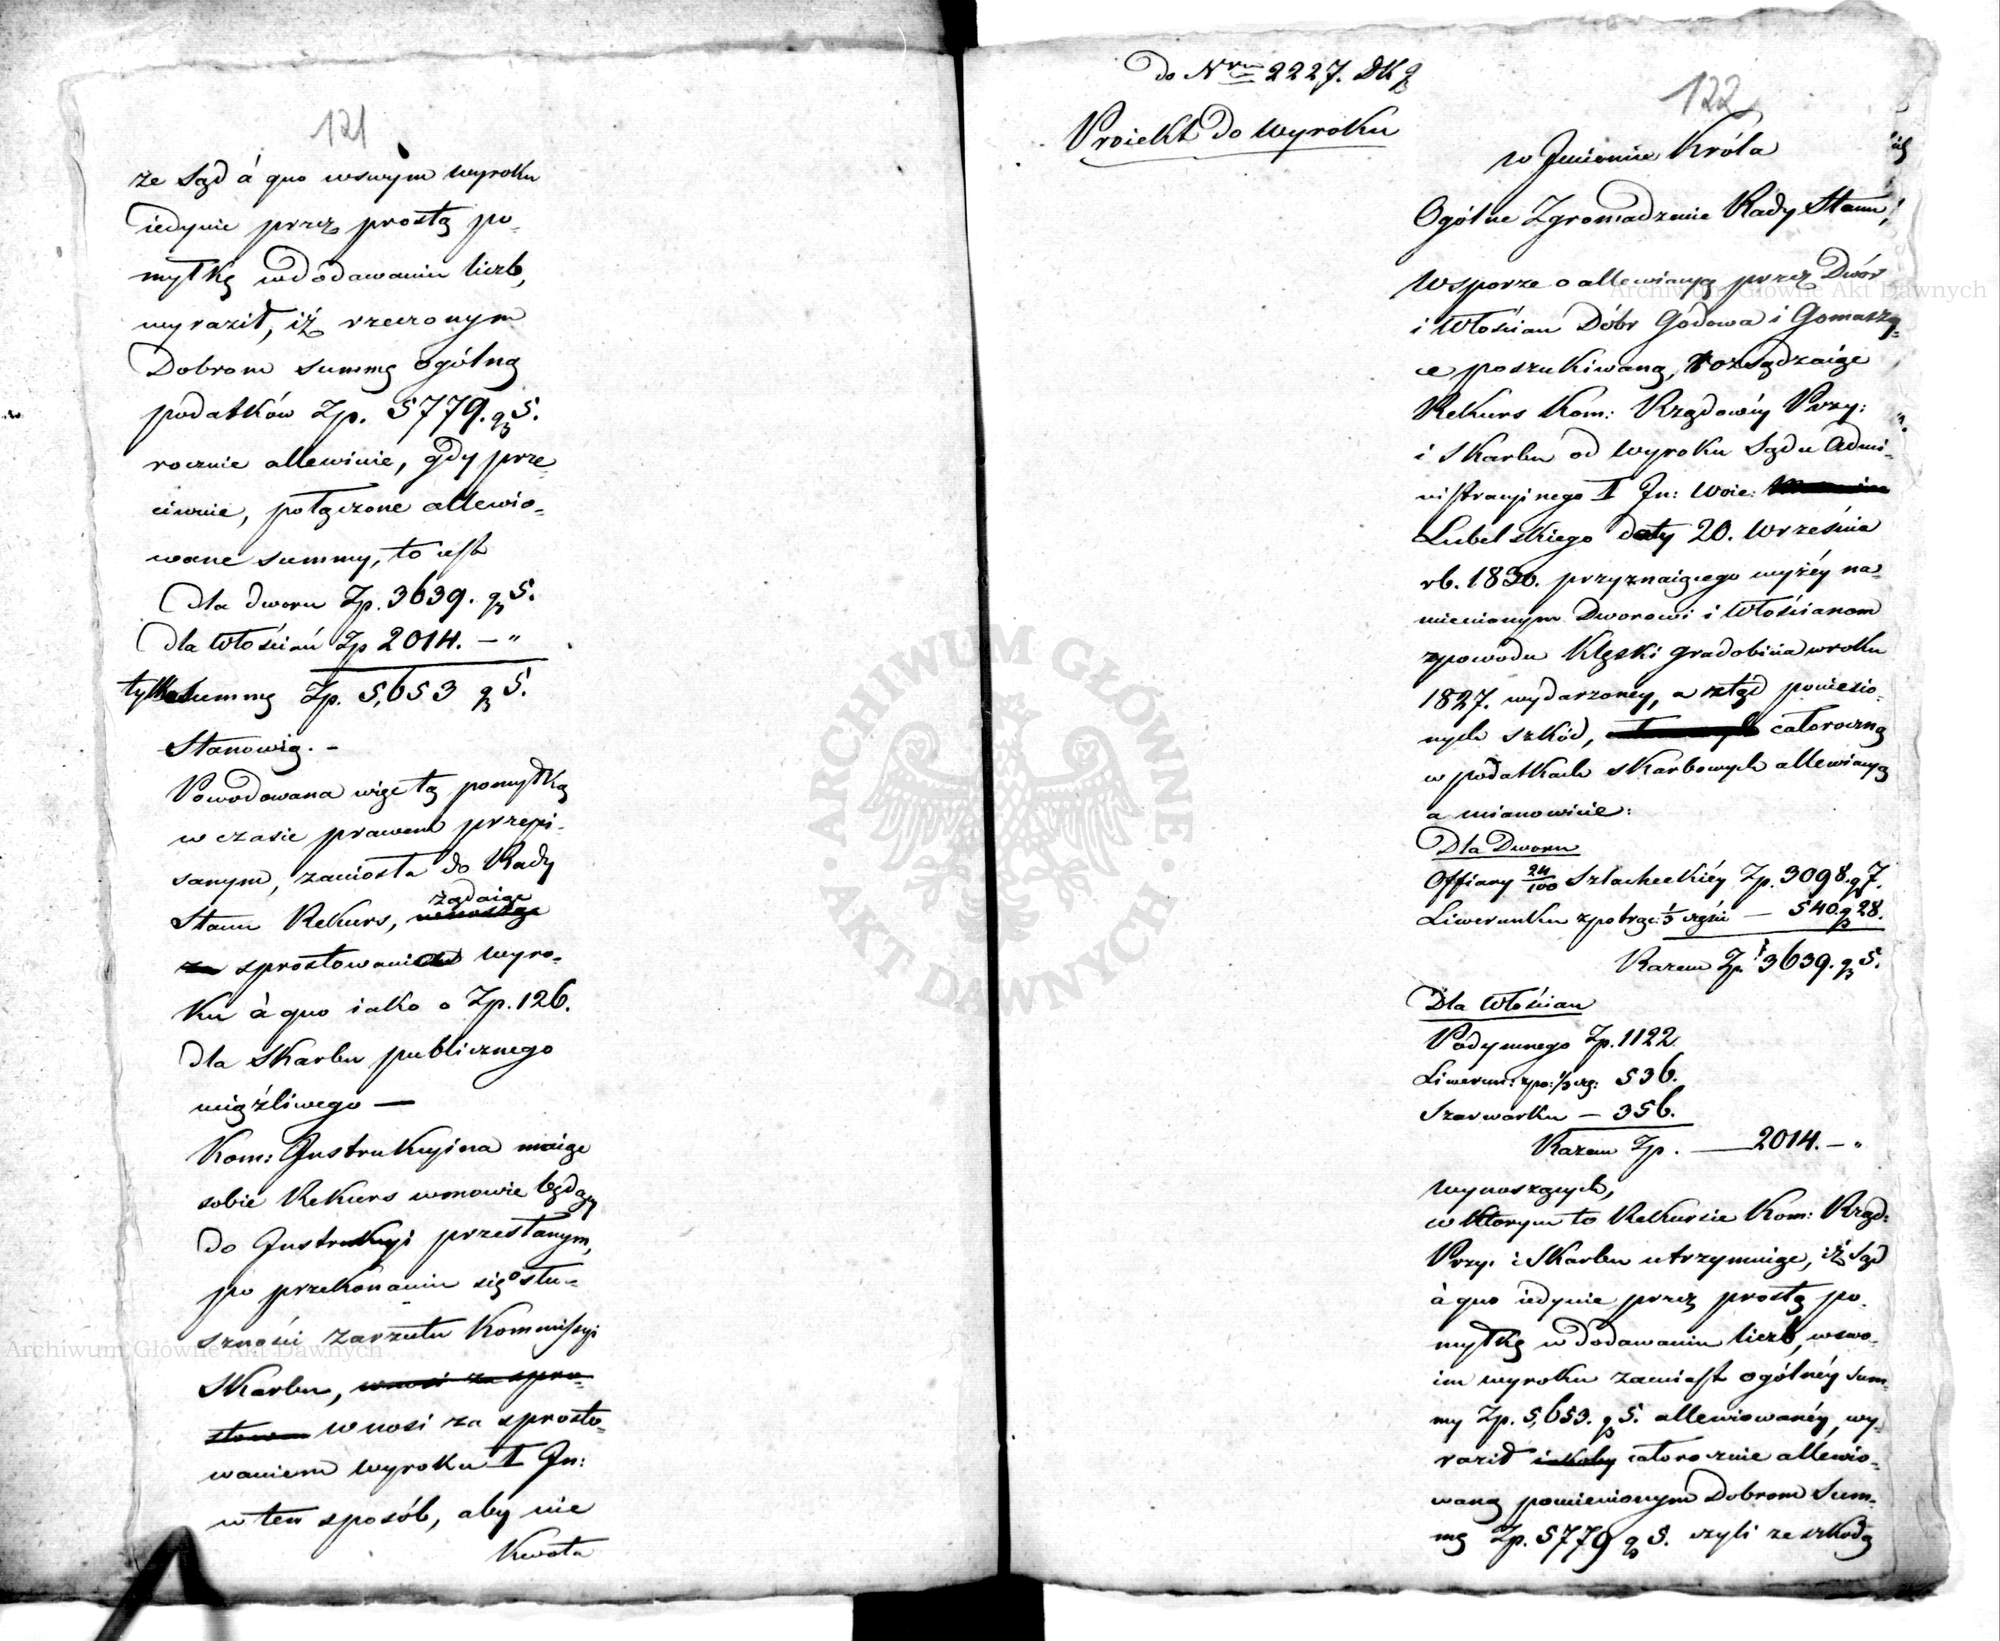 121
że Sąd á quo wswym wyroku
iedynie przez prostą po-
myłkę wdodawaniu liczb,
wyraził, iż rzeczonym
Dobrom summę ogólną
podatków Zp. 5779. g 5.
rocznie allewiuie, gdy prze
ciwnie, połączone allewio-
wane summy, to iest
dla dworu Zp. 3639. g 5.
dla Włościan Zp 2014. — "
tylko summę Zp. 5,653 g 5.
Stanowią. -
Powodowana więc tą pomyłką
w czasie prawem przepi-
sanym, zaniosła do Rady
Stanu Rekurs, żądaiąc
sprostowania wyro-
ku à quo iako o Zp. 126.
dla Skarbu publicznego
uciążliwego —
Kom: Instrukcyina maiąc
sobie Rekurs wmowie będący
do Instrukcyi przesłanym,
po przekonaniu się o słu-
szności zarzutu Kommissyi
Skarbu,
wnosi za sprosto-
waniem wyroku I In:
w ten sposób, aby nie
kwota
do Nru 2227. DKg
Proiekt do Wyroku
122
w Jmieniu Króla
Ogólne Zgromadzenie Rady Stanu,
Wsporze o allewiacyą przez Dwór
i Włościan Dóbr Godowa i Gomaszy-
ce poszukiwaną, rozsądzaiąc
Rekurs Kom: Rządowéy Przy:
i Skarbu od wyroku Sądu Admi-
nistracyinego I In: Woie:
Lubelskiego daty 20. Września
rb. 1830. przyznaiącego wyżéy na-
mienionym Dworowi i Włościanom
zpowodu klęski gradobicia wroku
1827. wydarzoney, a ztąd poniesio-
nych szkód, całoroczną
w podatkach skarbowych allewiacyą
a mianowicie:
Dla Dworu
Offiary 24/100 Szlacheckiéy Zp. 3098. g 7.
Liwerunku zpotrąc: 1/3 części — 540. g 28.
Razem Zp. 3639. g 5.
Dla Włościan
Podymnego Zp. 1122.
Liwerun: zpo: 1/3 czę: 536.
Szarwarku — 356.
Razem Zp. — 2014. — "
Wynoszących,
w którym to Rekursie Kom: Rząd:
Przy. i Skarbu utrzymuiąc, iż Sąd
à quo iedynie przez prostą po-
myłkę w dodawaniu liczb, wswo-
im wyroku zamiast ogólnéy sum-
my Zp. 5,653. g 5. allewiowanéy, wy-
raził całorocznie allewio-
waną pomienionym Dobrom Sum-
mę Zp. 5779 g 5. czyli ze szkodą
ARCHIWUM GŁÓWNE AKT DAWNYCH
Archiwum Główne Akt Dawnych
Archiwum Główne Akt Dawnych